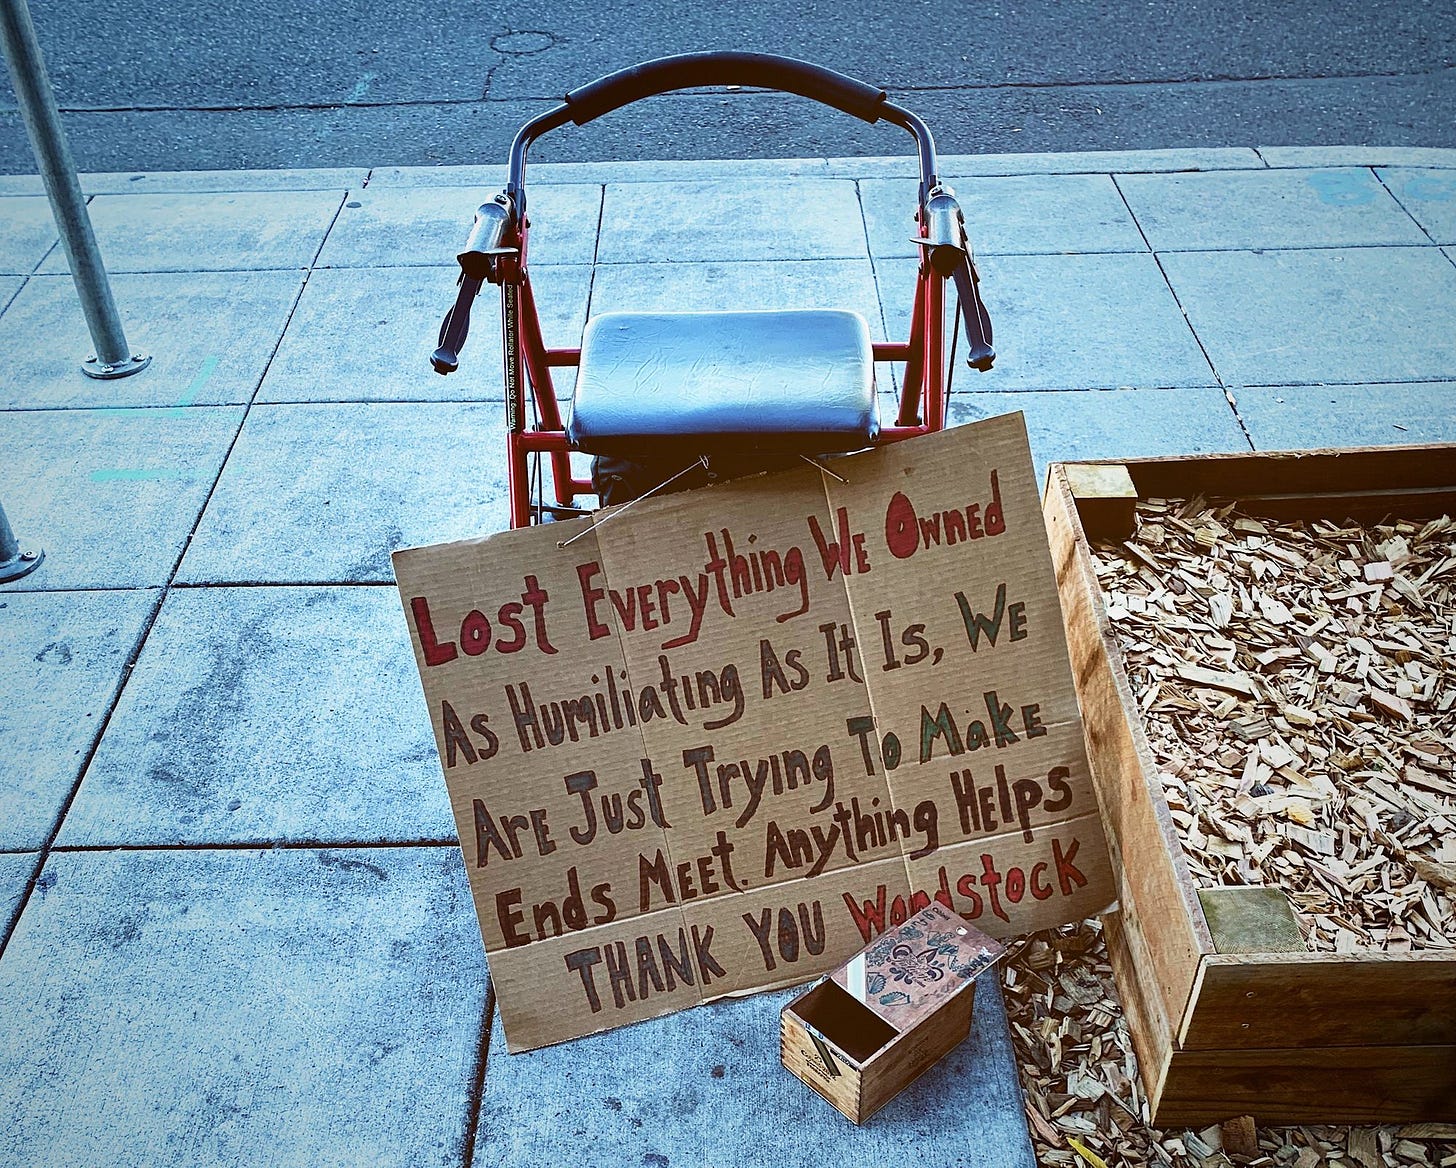 Warning: Do Not Move Rollator While Seated
Lost Everything We Owned
As Humiliating As It Is, We
Are Just Trying To Make
Ends Meet. Anything Helps
THANK YOU Woodstock